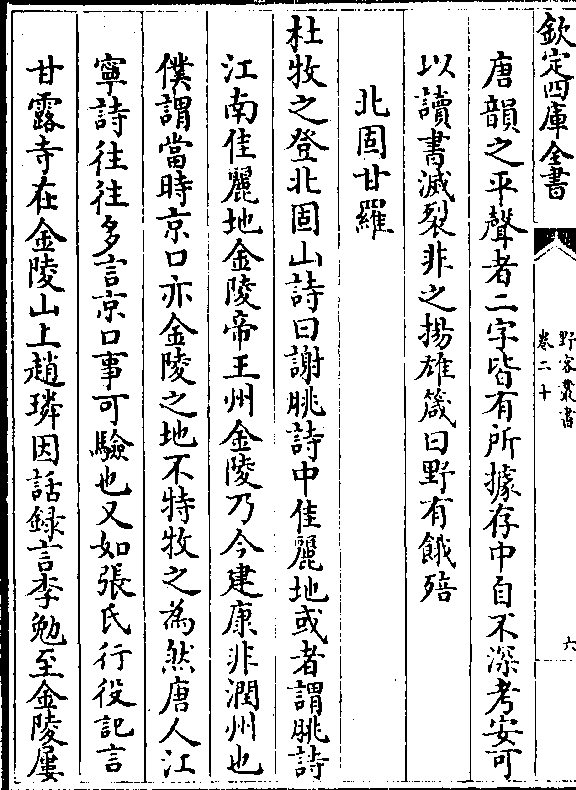 欽定四庫全書
野客叢書
卷二十
六
唐韻之平聲者二字皆有所據存中自不深考安可
以讀書滅裂非之揚雄箴曰野有餓殕
北固甘羅
杜牧之登北固山詩曰謝朓詩中佳麗地或者謂朓詩
江南佳麗地金陵帝王州金陵乃今建康非潤州也
僕謂當時京口亦金陵之地不特牧之為然唐人江
寧詩往往多言京口事可驗也又如張氏行役記言
甘露寺在金陵山上趙璘因話録言李勉至金陵屢